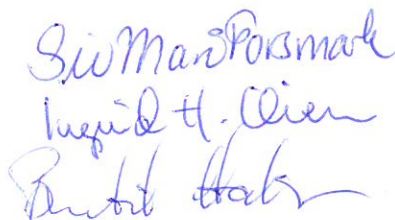 Siv Mari Forsmark
Ingrid H. Olien
Berit